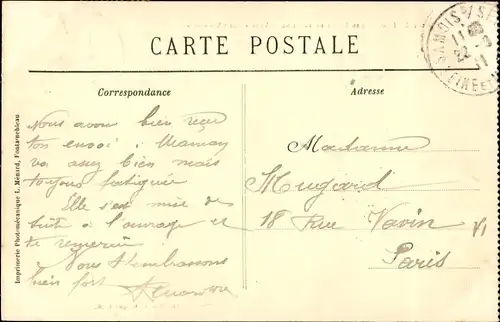 CARTE POSTALE
Correspondance
Nous avons bien reçu
ton envoi : Maman
va assez bien mais
toujours fatiguée
Elle s'est mise de
suite à l'ouvrage et
te remercie
Nous t'embrassons
bien fort
Adresse
Madame
Mugard
18 Rue Vavin
Paris
VI
SAMOIS S/ SEINE
11
22
11
SEINE ET
Imprimerie Photo-mécanique L. Ménard, Fontainebleau